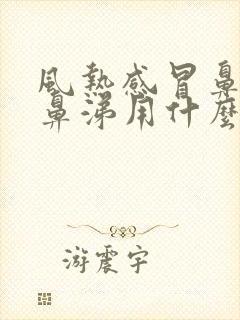 風熱感冒鼻
鼻涕用什麼
游震宇